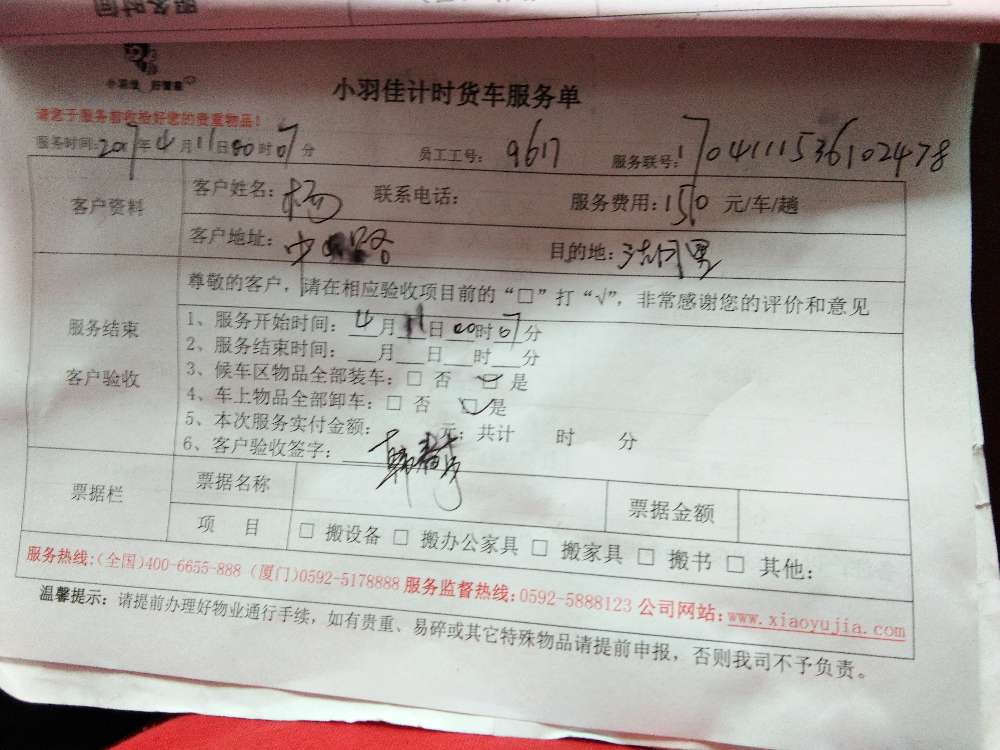 服务时间
小羽佳 好管家
小羽佳计时货车服务单
请您于服务前收验好您的贵重物品!
服务时间:2017年4月11日00时07分 员工工号: 9617 服务联号:1704111536102478
客户资料 客户姓名:杨 联系电话: 服务费用:150元/车/趟
客户地址: 路 目的地:
尊敬的客户,请在相应验收项目前的“□”打“√”,非常感谢您的评价和意见
服务结束
客户验收
1、服务开始时间:4月11日00时07分
2、服务结束时间:___月___日___时___分
3、候车区物品全部装车:□ 否 ☑ 是
4、车上物品全部卸车:□ 否 ☑ 是
5、本次服务实付金额: 元;共计 时 分
6、客户验收签字:韩
票据栏 票据名称 票据金额
项 目 □ 搬设备 □ 搬办公家具 □ 搬家具 □ 搬书 □ 其他:
服务热线:(全国)400-6655-888 (厦门)0592-5178888 服务监督热线:0592-5888123 公司网站:www.xiaoyujia.com
温馨提示:请提前办理好物业通行手续,如有贵重、易碎或其它特殊物品请提前申报,否则我司不予负责。